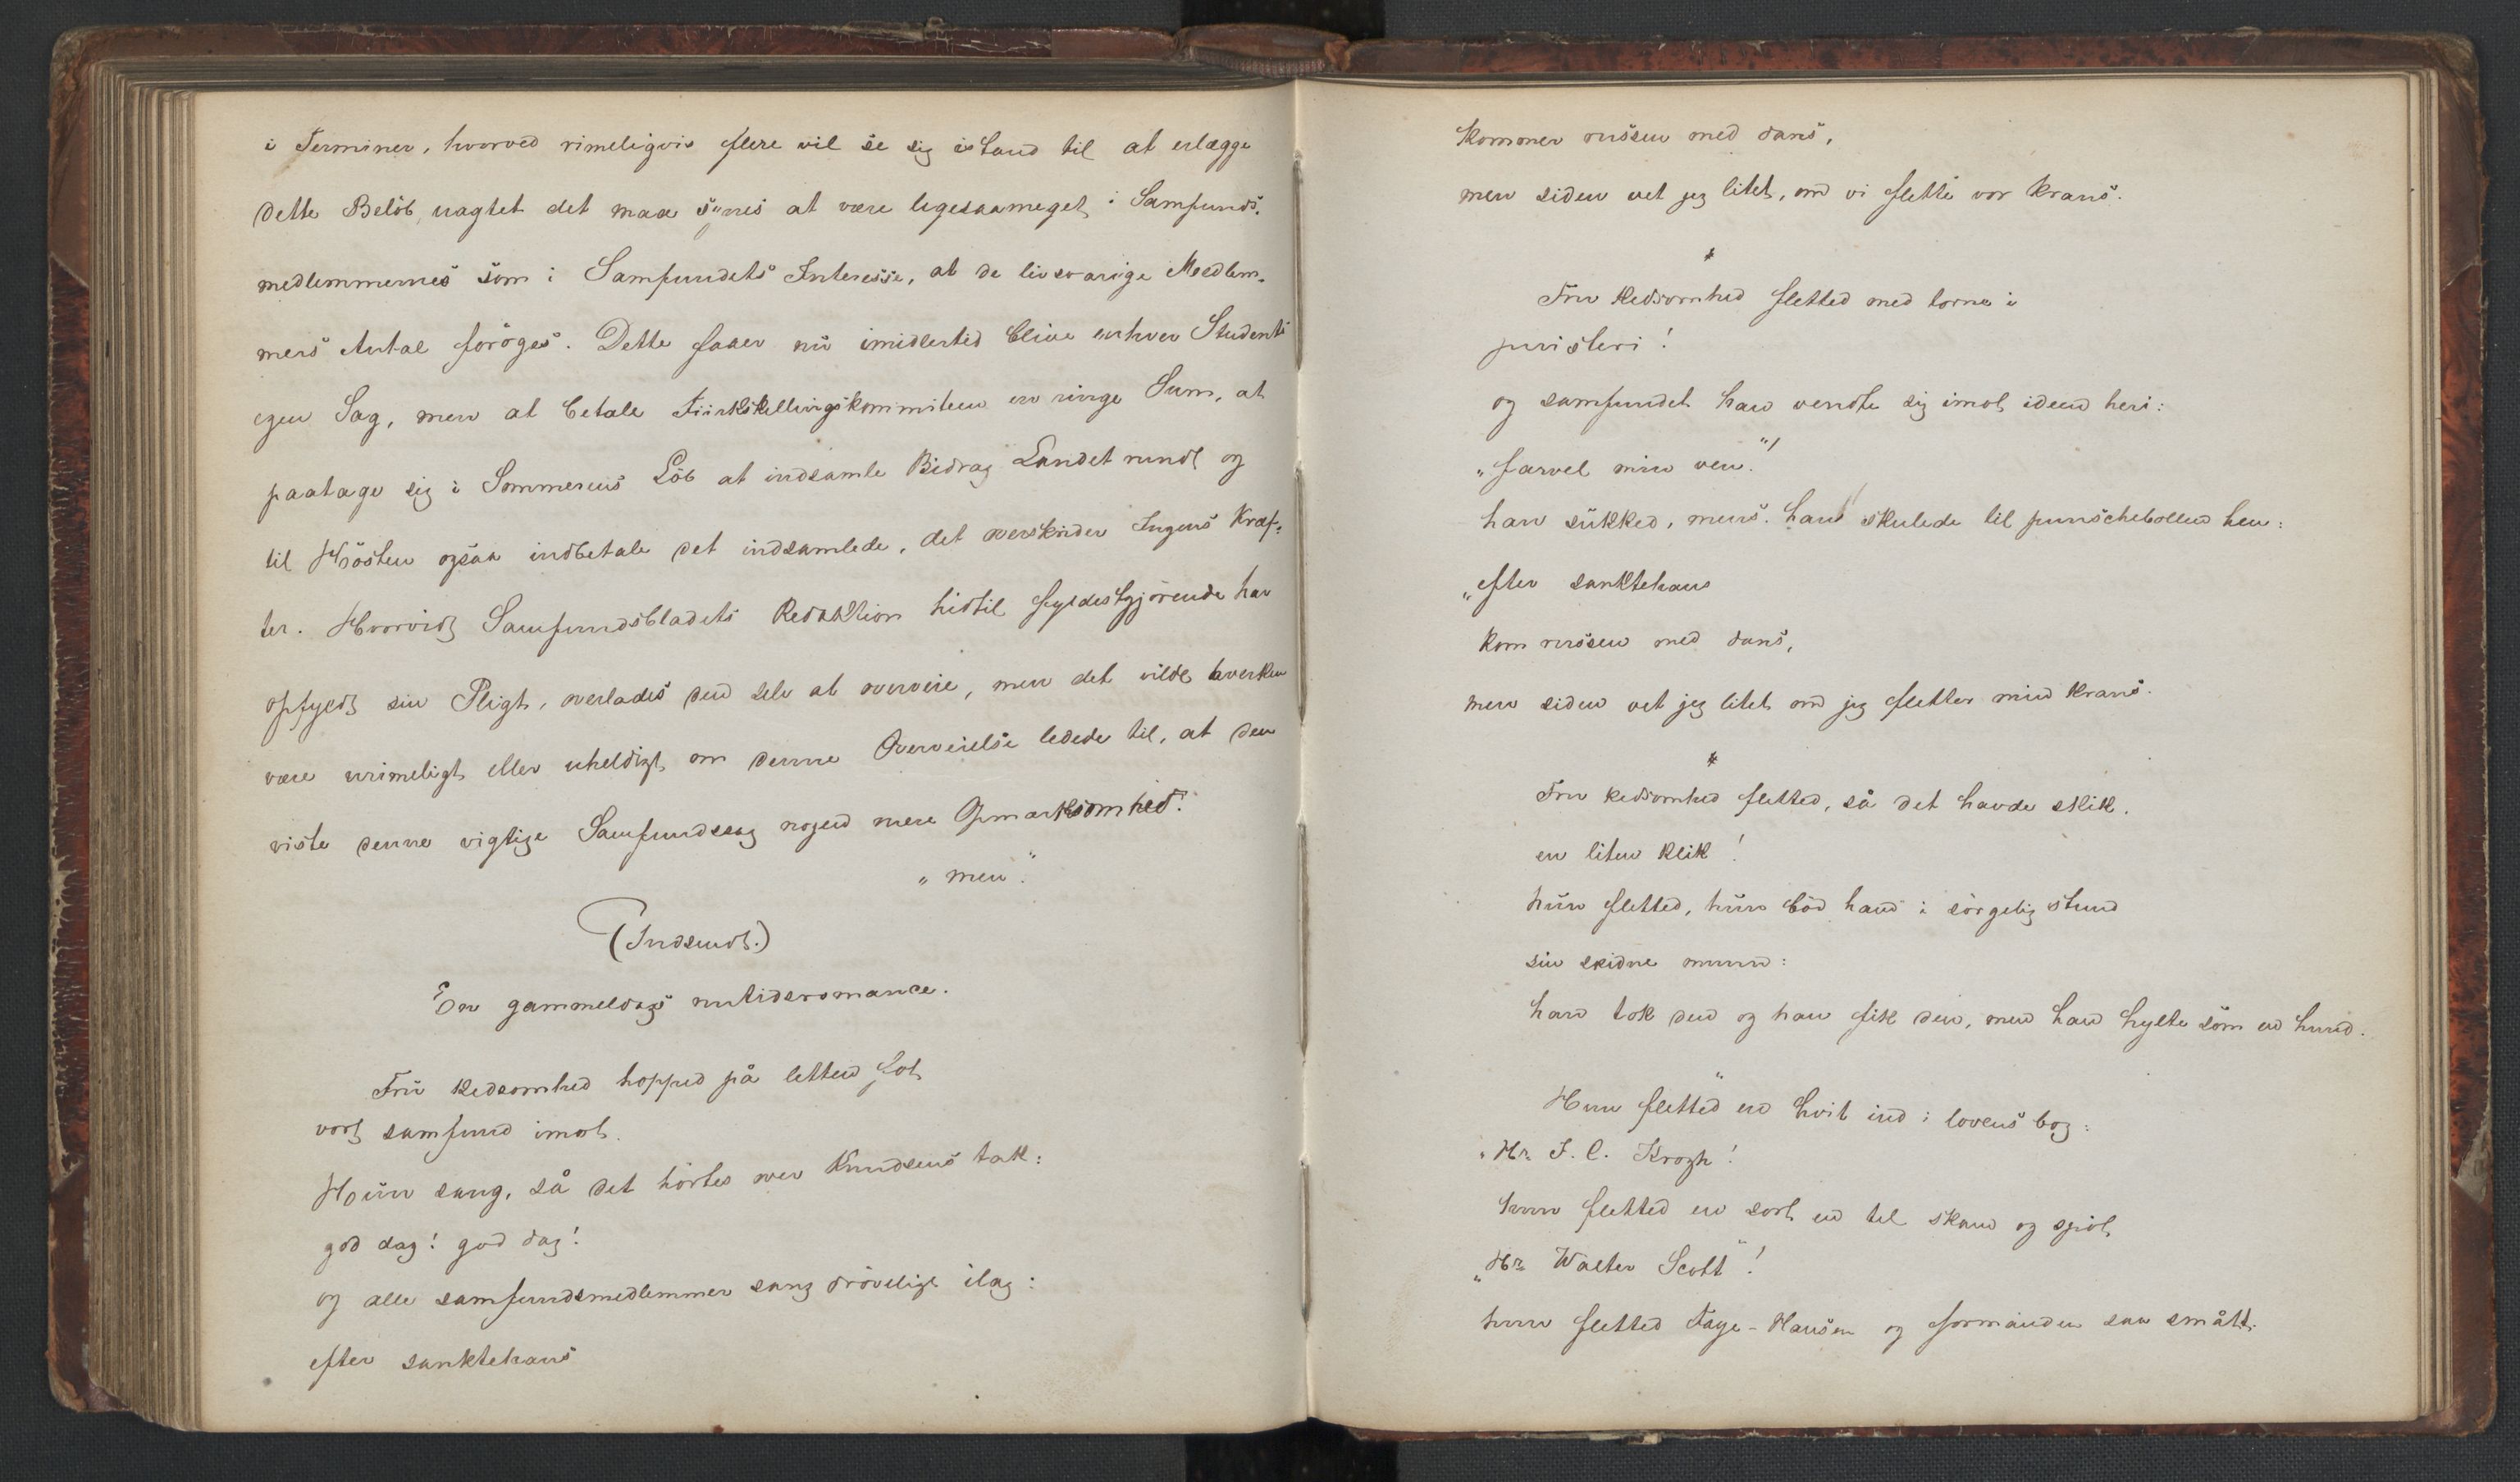 i Terminer, hvorved rimeligvis flere vil se sig istand til at erlægge
dette Beløb, uagtet det maa synes at være ligesaameget i Samfunds-
medlemmernes som i Samfundets Interesse, at de livsvarige Medlem-
mers Antal forøges. Dette faaer nu imidlertid blive enhver Students
egen Sag, men at betale Fiirskillingskommiteen en ringe Sum, at
paatage sig i Sommerens Løb at indsamle Bidrag Landet rundt og
til Høsten ogsaa indbetale det indsamlede, det overskrider Ingens Kræf-
ter. Hvorvidt Samfundsbladets Redaktion hidtil fyldestgjørende har
opfyldt sin Pligt, overlades den selv at overveie, men det vilde hverken
være urimeligt eller uheldigt om denne Overveielse ledede til, at den
viste denne vigtige Samfundssag nogen mere Opmærksomhed.
"men".
(Indsendt.)
En gammeldags nutidsromance.
Fru kedsomhed hopped på letten fot
vort samfund imot.
Hun sang, så det hørtes over Knudsens tak:
god dag! god dag!
og alle samfundsmedlemmer sang drøvelige ilag:
efter sanktehans
kommer russen med dans,
men siden vet jeg litet, om vi flette vor krans.
*
Fru kedsomhed fletted med torne i
puristeri!
og samfundet han vendte sig imot ideen heri:
"farvel min ven."!
han sukked, mens han skulede til punschebollen hen:
"efter sanktehans
kom russen med dans,
men siden vet jeg litet om jeg fletter min krans.
*
Fru kedsomhed fletted, så det havde skik.
en liten klik!
hun fletted, hun bød han i sørgelig stund
sin skidne mund:
han tok den og han fik den, men han hylte som en hund.
"
Hun fletted en hvit ind i lovens bog:
"Hr. J. C. Krogh!
hun fletted en sort en til skam og spot
"Hr. Walter Scott"!
hun fletted Faye-Hansen og formanden saa smått.